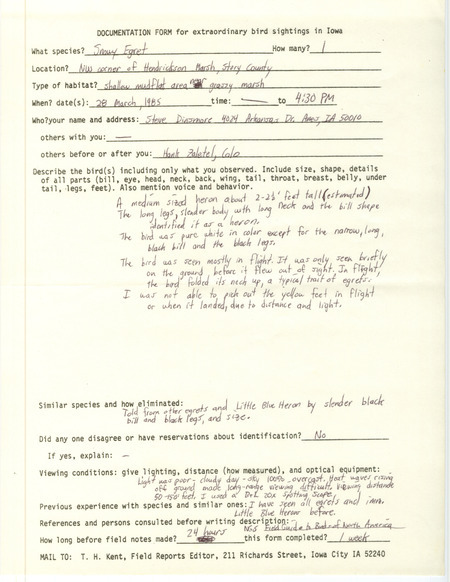 DOCUMENTATION FORM for extraordinary bird sightings in Iowa
What species? Snowy Egret How many? 1
Location? NW corner of Hendrickson Marsh, Story County
Type of habitat? shallow mudflat area near grassy marsh
When? date(s): 28 March, 1985 time: — to 4:30 PM
Who?your name and address: Steve Dinsmore 4024 Arkansas Dr. Ames, IA 50010
others with you: —
others before or after you: Hank Zaletel, Colo
Describe the bird(s) including only what you observed. Include size, shape, details
of all parts (bill, eye, head, neck, back, wing, tail, throat, breast, belly, under
tail, legs, feet). Also mention voice and behavior.
A medium sized heron about 2-2½ feet tall (estimated)
The long legs, slender body with long neck and the bill shape
identified it as a heron.
The bird was pure white in color except for the narrow, long,
black bill and the black legs.
The bird was seen mostly in flight. It was only seen briefly
on the ground before it flew out of sight. In flight,
the bird folded its neck up, a typical trait of egrets.
I was not able to pick out the yellow feet in flight
or when it landed, due to distance and light.
Similar species and how eliminated:
Told from other egrets and Little Blue Heron by slender black
bill and black legs, and size.
Did any one disagree or have reservations about identification? No
If yes, explain: —
Viewing conditions: give lighting, distance (how measured), and optical equipment:
Light was poor - cloudy day - sky 100% overcast. Heat waves rising
off ground made long-range viewing difficult. Viewing distance
50-150 feet. I used a 20x spotting scope.
Previous experience with species and similar ones: I have seen all egrets and imm.
Little Blue Heron before.
References and persons consulted before writing description: NGS Field Guide to Birds of North America
How long before field notes made? 24 hours this form completed? 1 week
MAIL TO: T. H. Kent, Field Reports Editor, 211 Richards Street, Iowa City IA 52240